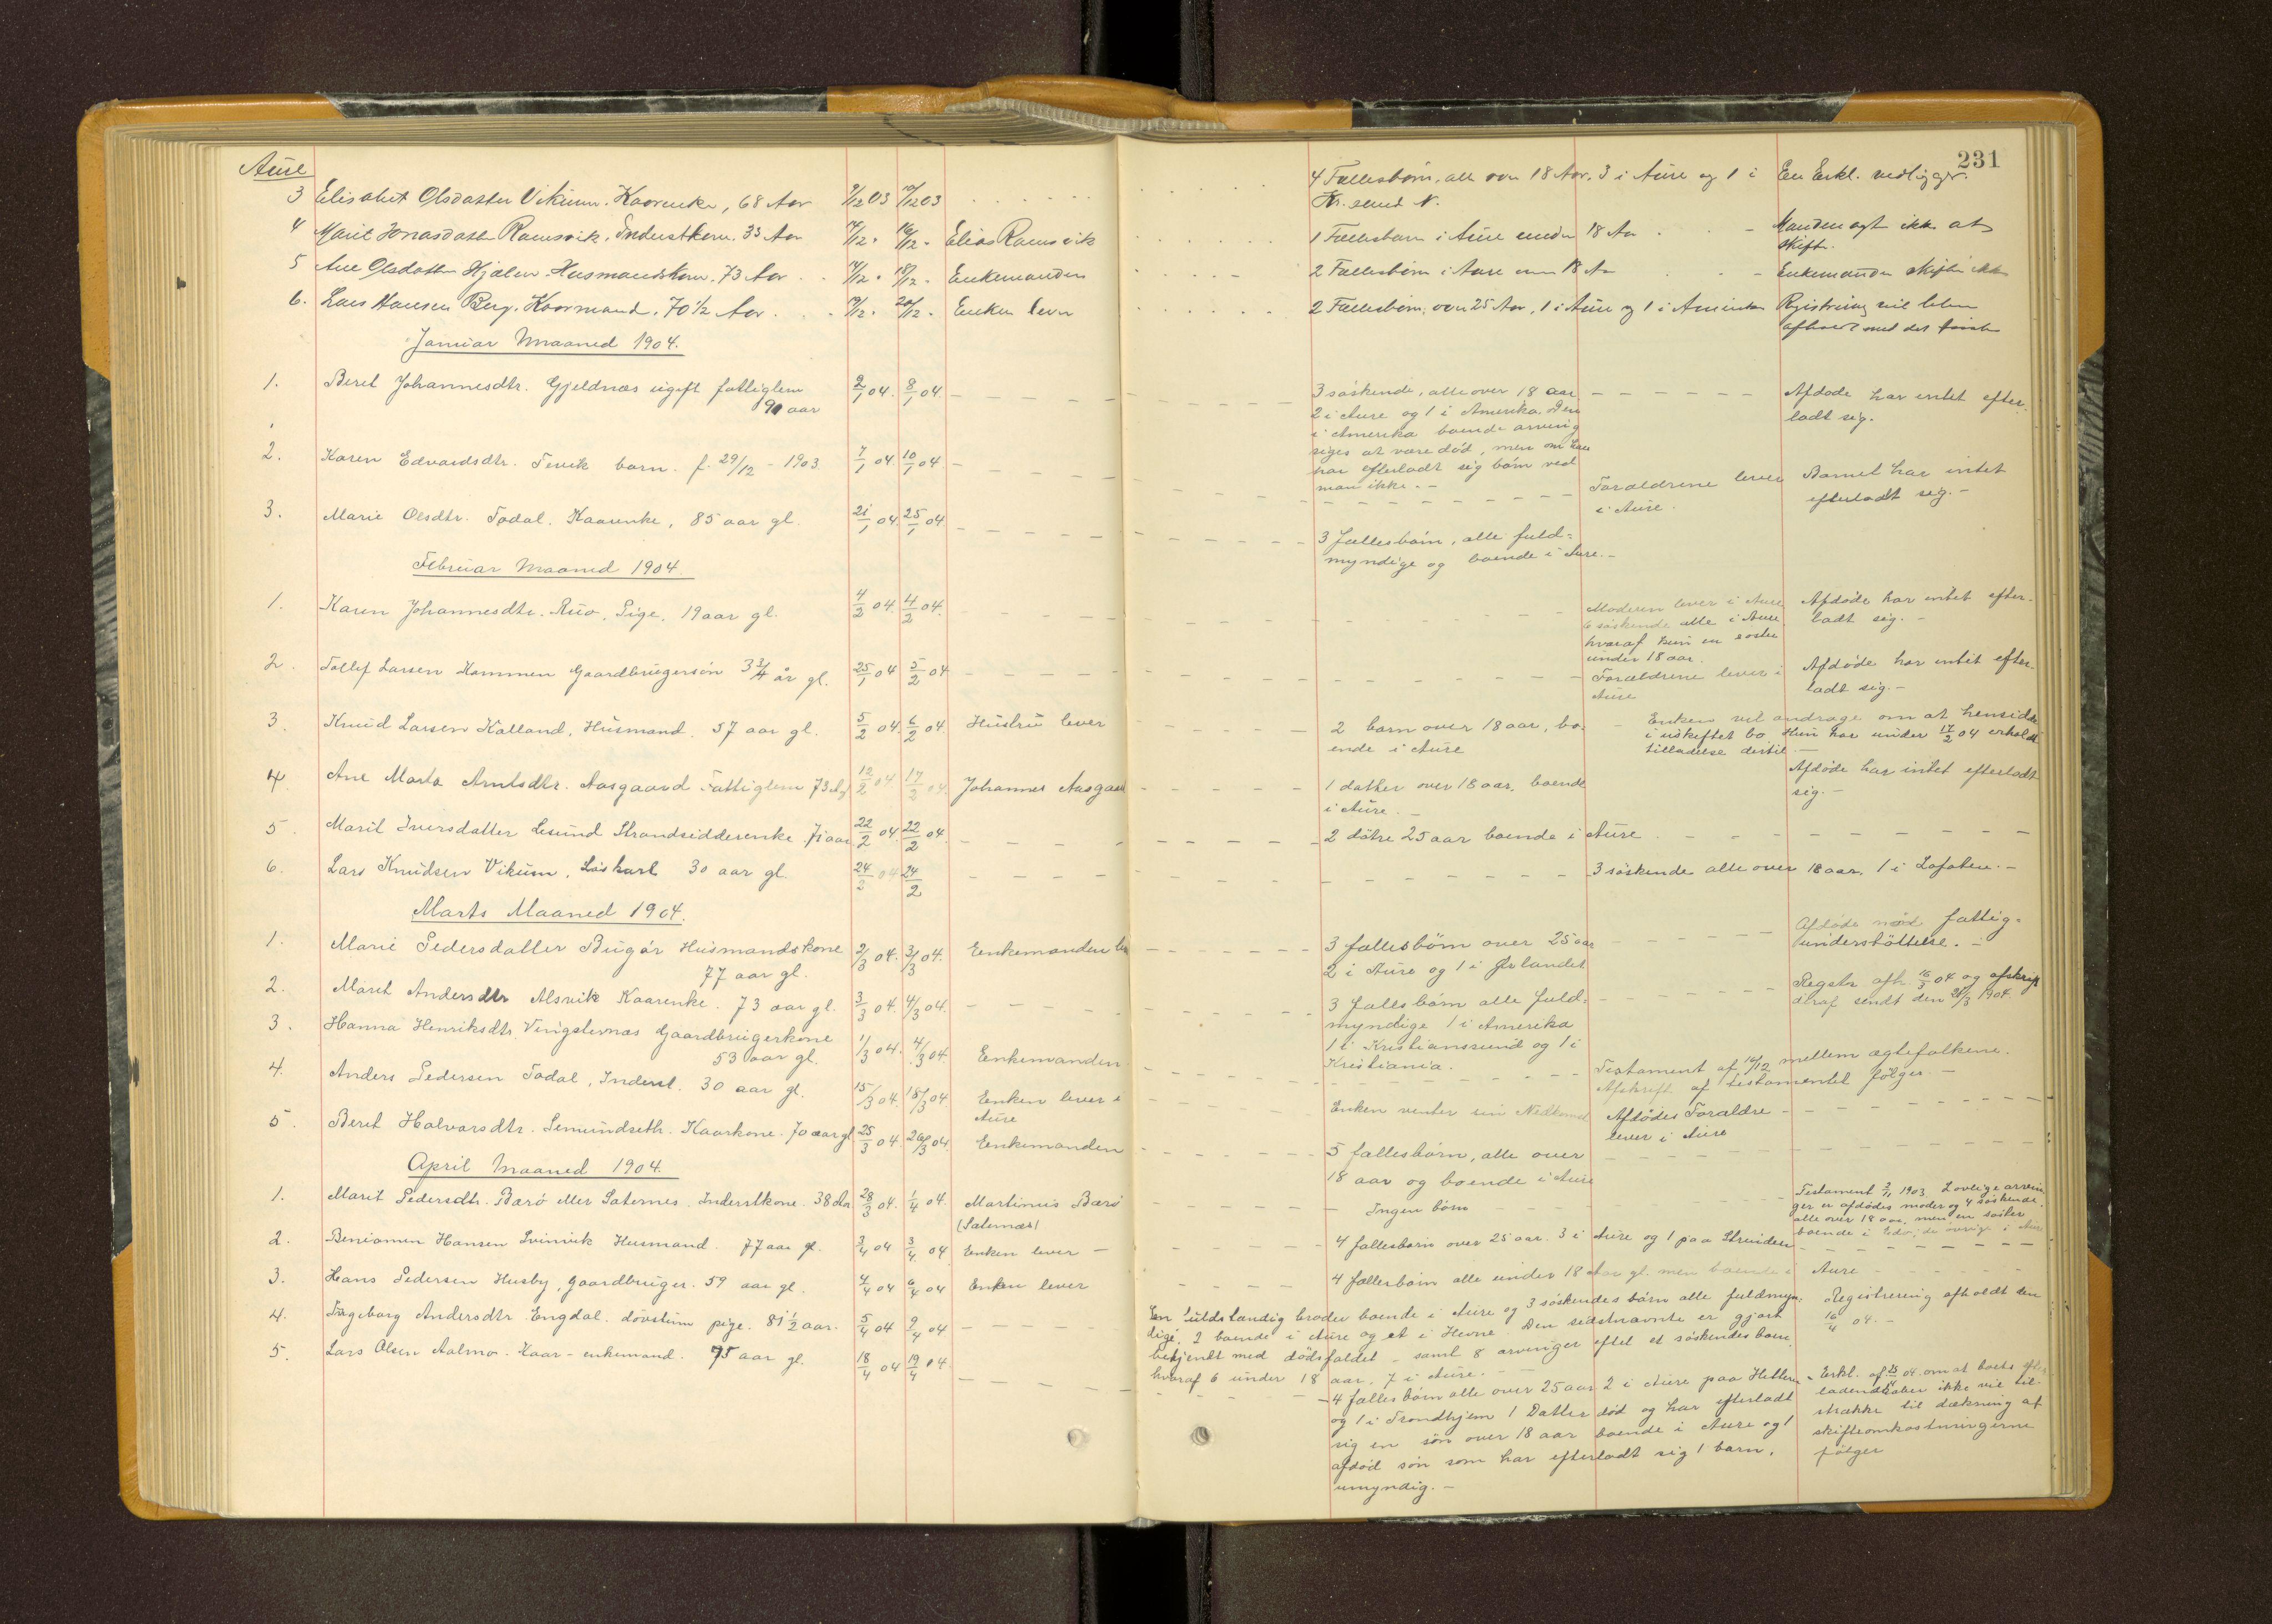 231
Aure
3 Elisabet Olsdatter Vikum. Kaarenke, 68 Aar 9/12 03 10/12 03
4 Fællesbörn, alle over 18 Aar, 3 i Aure og 1 i
Kr.sund N.
En Erkl. vedligger.
4 Marit Jonasdatter Ramsvik, Inderstkone. 33 Aar 14/12 " 16/12 " Elias Ramsvik
1 Fællesbarn i Aure under 18 Aar
Manden agt ikke at
skifte.
5 Ane Olsdatter Hjælen. Husmandskone. 73 Aar 14/12 " 18/12 " Enkemanden
2 Fællesbörn i Aure over 18 Aar
Enkemanden skifter ikke
6. Lars Hansen Berg. Kaarmand. 70 1/2 Aar 19/12 " 20/12 " Enken lever
2 Fællesbörn, over 25 Aar, 1 i Aure og 1 i Amerika
Registrering vil blive
afholdt med det første
Januar Maaned 1904.
1. Beret Johannesdtr. Gjeldnæs ugift fattiglem
90 aar
2/1 04. 8/1 04.
3 söskende, alle over 18 aar
2 i Aure og 1 i Amerika. Den
i Amerika boende arving
siges at være död, men om han
har efterladt sig börn ved
man ikke. -
Afdöde har intet efter
ladt sig.
2. Karen Edvardsdtr. Tevik barn. f. 29/12 - 1903. 7/1 04. 10/1 04.
Forældrene lever
i Aure.
Barnet har intet
efterladt sig. -
3. Marie Olsdtr. Todal. Kaarenke, 85 aar gl. 21/1 04. 25/1 04.
3 fællesbörn, alle fuld=
myndige og boende i Aure. -
Februar Maaned 1904.
1. Karen Johannesdtr. Ruo, Pige, 19 aar gl. 4/2 04. 4/2 04.
Moderen lever i Aure
6 söskende alle i Aure
hvoraf kun en söster
under 18 aar.
Afdöde har intet efter-
ladt sig. -
2. Tollef Larsen Kammen Gaardbrugersön 3 3/4 år gl. 25/1 04 5/2 04
Forældrene lever i
Aure
Afdöde har intet efter-
ladt sig. -
3. Knud Larsen Kalland, Husmand. 57 aar gl. 5/2 04. 6/2 04. Hustru lever
2 barn over 18 aar, bo-
ende i Aure
Enken vil andrage om at hensidde
i uskiftet bo. Hun har under 17/2 04 erholdt
tilladelse dertil. -
4. Ane Marta Arntsdtr. Aasgaard Fattiglem 73 12/2 04 17/2 04. Johannes Aasgaard
1 datter over 18 aar, boende
i Aure. -
Afdöde har intet efterladt
sig. -
5. Marit Iversdatter Lesund Strandsidderenke 75 aar 22/2 04. 22/2 04.
2 dötre 25 aar boende i Aure.
6. Lars Knudsen Vikum. Löskarl 30 aar gl. 24/2 04 24/2
3 söskende alle over 18 aar, 1 i Lofoten. -
Marts Maaned 1904.
1. Marie Pedersdatter Bugår Husmandskone
77 aar gl.
2/3 04. 3/3 04. Enkemanden lever
3 fællesbörn over 25 aar
2 i Aure og 1 i Ørlandet
Afdöde nöd fattig=
understöttelse. -
2. Marit Andersdtr Alsvik Kaarenke. 73 aar gl. 3/3 04. 4/3 04.
3 fællesbörn alle fuld=
myndige 1 i Amerika
1 i Kristianssund og 1 i
Kristiania.
Registr. afh. 16/3 04 og afskrift
deraf sendt den 28/3 1904.
3. Hanna Henriksdtr Vingsternæs Gaardbrugerkone
53 aar gl.
1/3 04. 4/3 04 Enkemanden
Testament af 16/12 mellem ægtefolkene.
Afskrift af testamentet fölger. -
4. Anders Pedersen Todal, Inderst. 30 aar gl. 15/3 04. 18/3 04. Enken lever i
Aure
Enken venter sin Nedkomst
Afdödes Forældre
lever i Aure
5. Beret Halvorsdtr. Semundseth. Kaarkone. 70 aar gl 25/3 04 26/3 04. Enkemanden
5 fællesbörn, alle over
18 aar og boende i Aure
April Maaned 1904.
1. Marit Pedersdtr. Barö eller Saternes. Inderstkone. 38 Aar 28/3 04. 1/4 04. Martinus Barö
(Saternæs)
Ingen börn
Testament 3/11 1903. Lovlige arvin
ger er afdödes moder og 4 söskende
alle over 18 aar, men en söster
boende i Edö, de övrige i Aure
2. Beniamen Hansen Svinvik Husmand. 77 aar gl. 3/4 04 3/4 04 Enken lever -
4 fællesbörn over 25 aar. 3 i Aure og 1 paa Strinden
3. Hans Pedersen Husby, Gaardbruger. 59 aar gl. 4/4 04 6/4 04 Enken lever
4 fællesbörn alle under 18 Aar gl. men boende i Aure
4. Ingeborg Andersdtr Engdal. dövstum pige. 81 1/2 aar. 5/4 04 9/4 04
En fuldstændig broder boende i Aure og 3 söskendes börn alle fuldmyn.
dige. 2 boende i Aure og et i Hevne. Den sidstnævnte er gjort
bekjendt med dödsfaldet - samt 8 arvinger efter et söskendes barn
hvoraf 6 under 18 aar. 7 i Aure. -
Registrering afholdt den
16/4 04. -
5. Lars Olsen Aalmo. Kaar-enkemand. 75 aar gl. 18/4 04 19/4 04.
4 fælles börn alle over 25 aar 2 i Aure paa Hitteren
og 1 i Trondhjem 1 Datter död og har efterladt
sig en sön over 18 aar boende i Aure og 1
afdöd sön som har efterladt sig 1 barn,
umyndig. -
Erkl. af 25/4 04 om at boets efter
ladenskaber ikke vil til
strække til dækning af
skifteomkostningerne
fölger